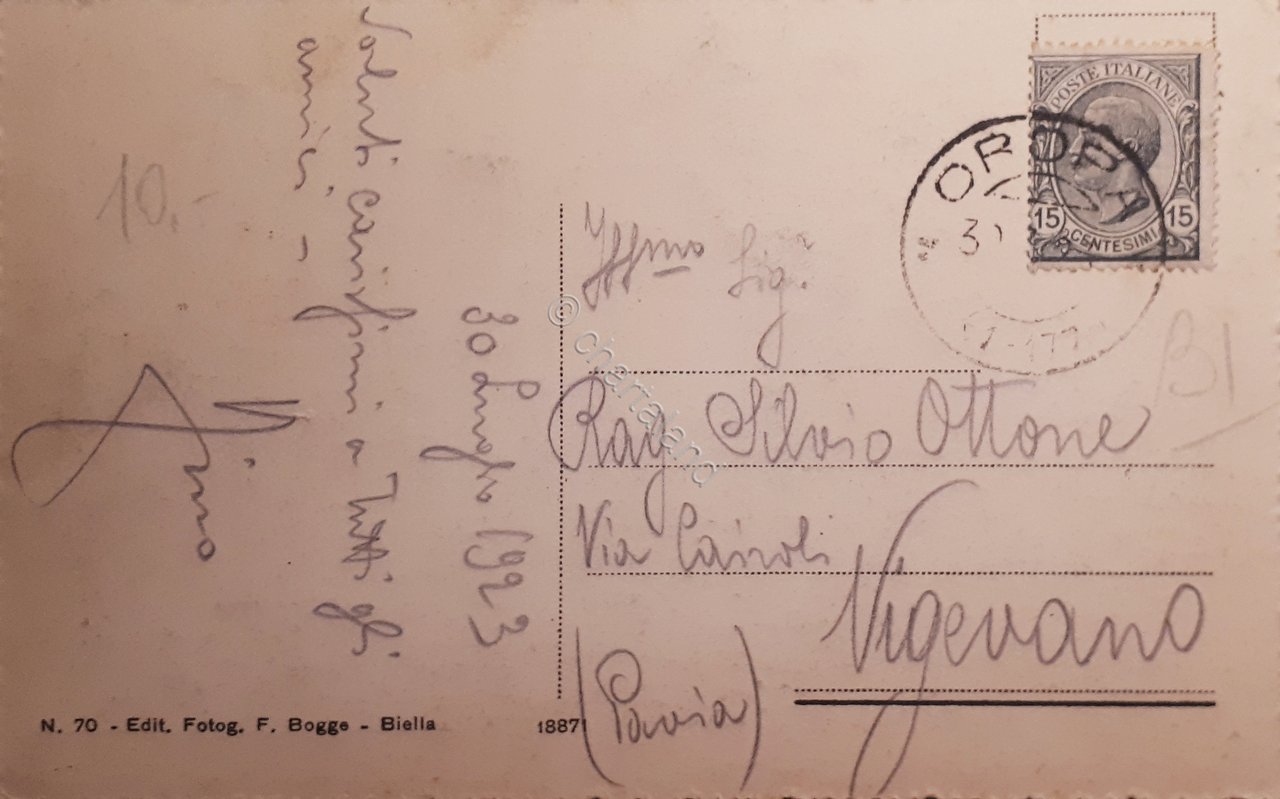 30 Luglio 1923
Saluti carissimi a Tutti gli
amici. -
Gino
10.-
POSTE ITALIANE
15 15
CENTESIMI
OROPA
30
Sig.r
Rag Silvio Ottone
Via Cairoli
Vigevano
(Pavia)
B1
N. 70 - Edit. Fotog. F. Bogge - Biella
1887
© chartaland